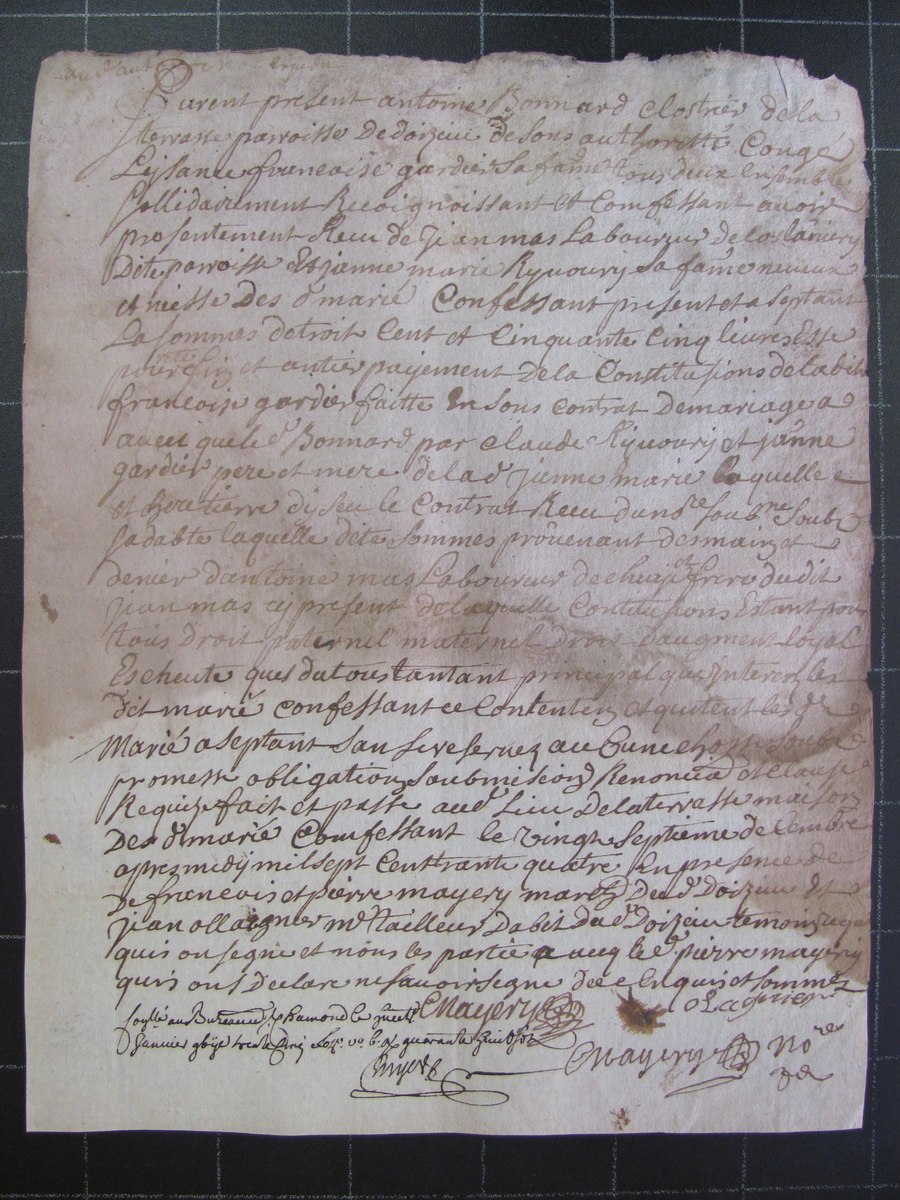 furent present antoine Bonnard clostrier de la
terrasse parroisse de doizieu & de sons authoritté Congé
Lissance francoise gardier sa fame tous deux ensemble
sollidairement Recoignoissant et comfessant avoir
presentement Recu de Jean mas Laboureur de
dite parroisse Et janne marie Rivoiry sa fame neveux
et niesse des d marié Confessant present et aseptant
La sommes de troit Cent et Cinquante Cinq livres Esse
pour fin et antier paijement de la Constitusions de la dite
francoise gardier faitte en sons contrat de mariage a
avecq que le d Bonnard par claude Rivoiry et janne
gardier pere et mere de la d janne marie laquelle
et heretierre diseu le Contrat Recu du no.re soub.ne soub
sa dabte laquelle dite sommes provenant des mainz et
denier d'antoine mas Laboureur de frere dudit
jean mas cy present de laquelle Contitusions Estant pour
tous droit paternel maternel droit daugment Loyal
Escheute que du toustantant principal que Interen les
dit marié confessant ce Contenten et quitent les d
Marié aseptant san se reservez aucune chosse soub
promesse obligation soubmision Renoncia et clause
Requize fait et passe aud Lieu de laterrasse maison
Des d marié Comfessant le vingt septieme decembre
aprez midy mil sept Cent trante quatre En presence de
de francois et pierre mayery march du d doizieu et
jean ollagnier md tailleur Dabit du d Doizieu temoinz
qui on segne et nous les partie avecq le d pierre mayery
quis ons declare ne savoir segne de ce Enquis et sommez
Mayery ollagnier
au Bureau de chamond le
Janvier trente Cinq quarante huit sols
Mayery No.re